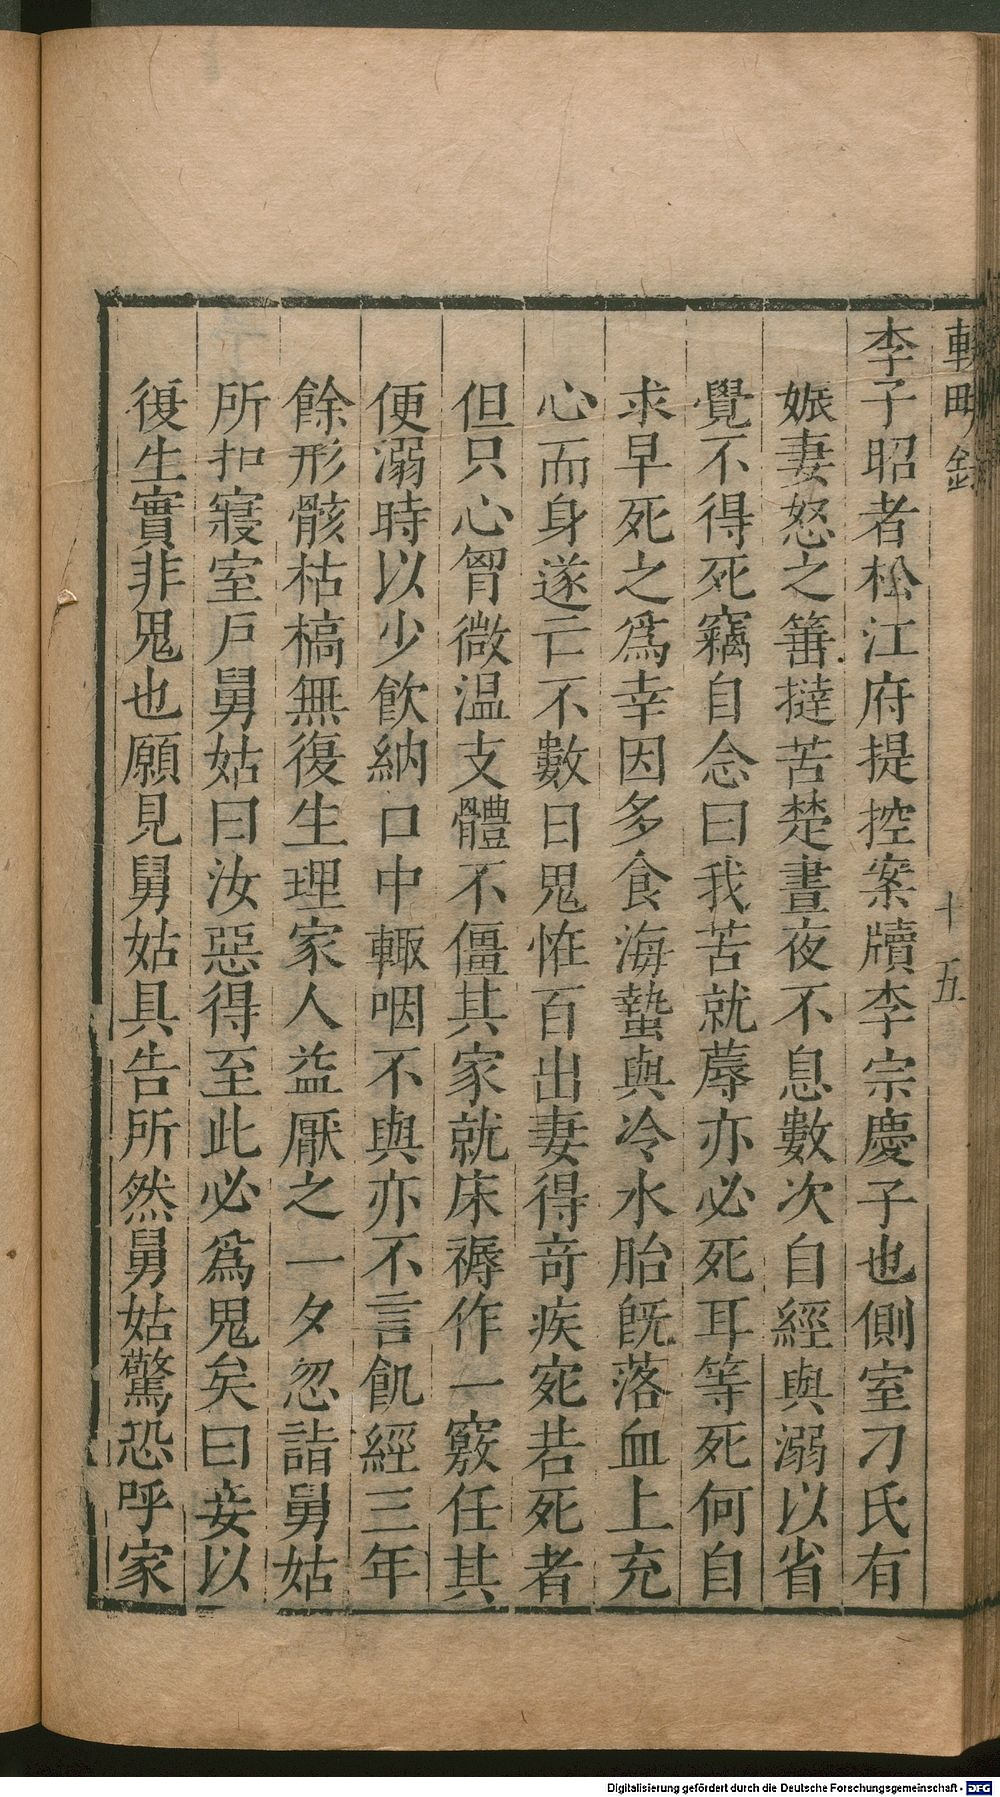 李子昭者松江府提控案牘李宗慶子也側室刁氏有
娠妻怒之箠撻苦楚晝夜不息數次自經與溺以省
覺不得死竊自念曰我苦就蓐亦必死耳等死何自
求早死之爲幸因多食海蟄與冷水胎旣落血上充
心而身遂亡不數日鬼恠百出妻得奇疾宛若死者
但只心胷微温支體不僵其家就床褥作一竅任其
便溺時以少飲納口中輙咽不與亦不言飢經三年
餘形骸枯槁無復生理家人益厭之一夕忽詣舅姑
所扣寢室戸舅姑曰汝惡得至此必爲鬼矣曰妾以
復生實非鬼也願見舅姑具告所然舅姑驚恐呼家
十五
Digitalisierung gefördert durch die Deutsche Forschungsgemeinschaft - DFG